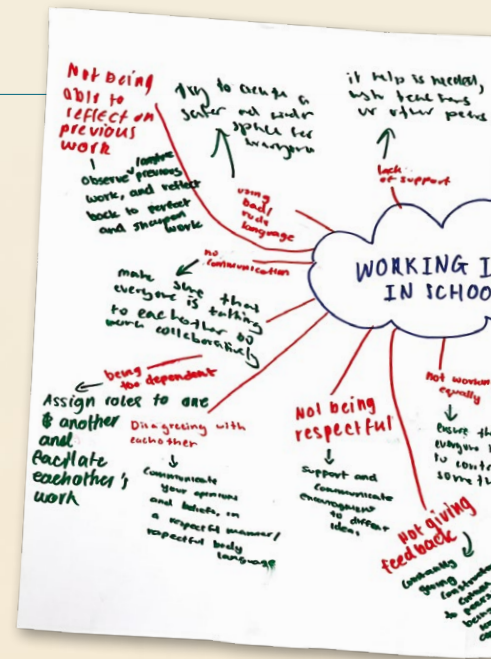 Not being
able to
reflect on
previous
work
observe/analyse previous
work, and reflect
back to perfect
and sharpen
work
Try to create a
safer and
space for
everyone
using
bad/
rude
language
if help is needed,
teachers
or other peers
lack
of support
WORKING I
IN SCHOO
no
communication
make sure that
everyone is talking
to eachother to
work collaboratively
being
too dependent
Assign roles to one
another
and
facilate
eachother's
work
Disagreeing with
eachother
Communicate
your opinions
and beliefs, in
a respectful manner/
respectful body
language
Not being
respectful
Support and
communicate
encouragment
to different
ideas
not workin
equally
ensure th
everyone
to cont
someth
Not giving
feedback
constantly
giving
construct
to peers
being